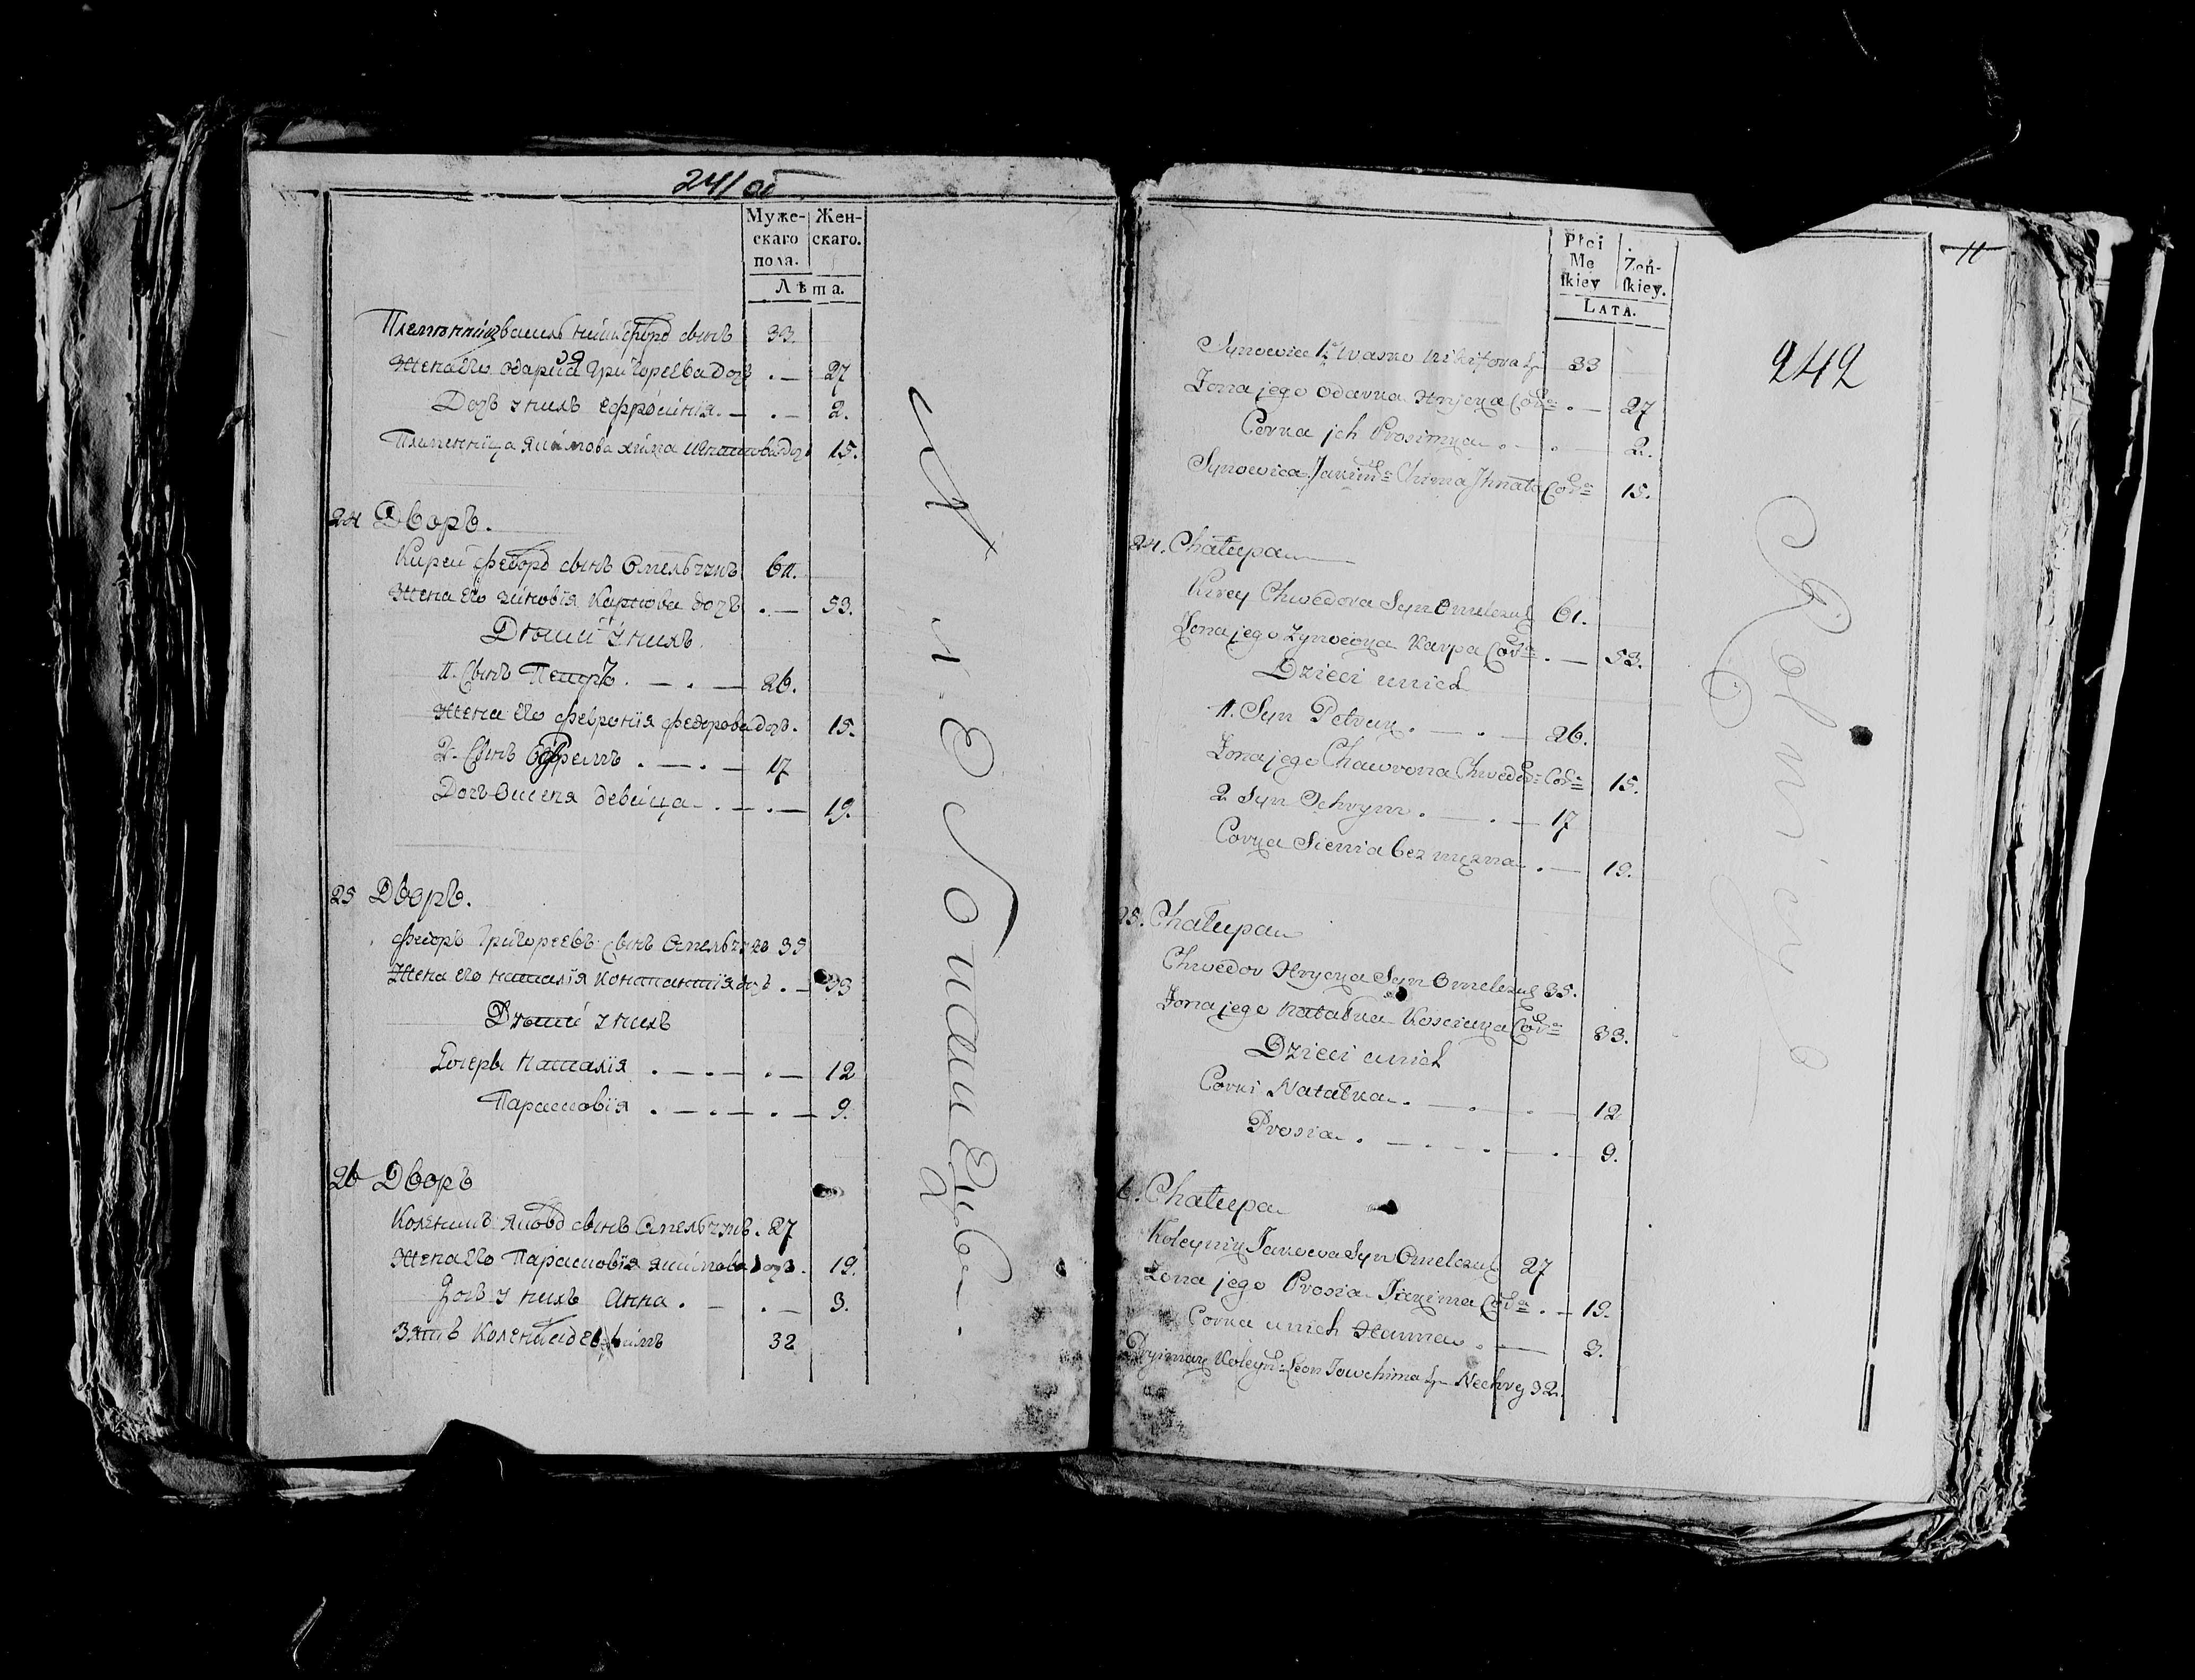 241 об
Муже- Жен-
скаго скаго.
пола.
Лѣта.
Племянникъ василь никифоровъ сынъ 33.
Жена его одария Григорьева дочь . — 27
Дочь у нихъ ефросинія. — . — 2.
Племенница якимова химка игнатова доч 15.
24 Дворъ.
Кирей федоровъ сынъ Омельчукъ 61.
Жена его зиновія Карпова дочь . — 53.
Дѣти у нихъ.
1. Сынъ Петръ . — . — 26.
Жена его февронія федорова доч. 15.
2. Сынъ Ефремъ . — . — 17
Дочь Ксеня девица — . — . — 19.
25 Дворъ.
федоръ Григорьевъ сынъ Омельчукъ 35
Жена его наталія Константія дочь . — 33
Дѣти у нихъ
Дочерь Наталія . — . — . — 12
Парасковія . — . — . — 9.
26 Дворъ
Колѣникъ яковъ сынъ Омельчукъ . 27
Жена его Парасковія якимова доч. 19.
Дочь у нихъ Анна . — . — 3.
Зять 32
Płci Żeń-
Mę skiey.
skiey
LATA.
11
242
Synowiec Iwasko Nikifora Sy 33
Żona jego Odarka Hryćka Córa . — 27
Corka jch Prosimka . — . — 2.
Synowica Jakima Chima Jhnata Córa 15.
24. Chałupa
Kirey Chwedora Syn Omelczuk 61.
Żona jego Zynowia Karpa Córa . — 53.
Dzieci unich
1. Syn Petruk . — . — 26.
Żona jego Chawrona Chwedor: Cór: 15.
2 Syn Ochrym . — . — 17
Corka Sienia bez męzna . — 19.
25. Chałupa
Chwedor Hryćka Syn Omelczuk 35.
Żona jego Natałka Kosciuka Córa 33.
Dzieci unich
Corki Natałka . — . — . — 12
Prosia . — . — . — . — 9.
6. Chałupa
Koleynik Jakowa Syn Omelczuk 27
Żona jego Prosia Jakima Córa . — 19.
Corka unich Hanna . — 3.
Pryimak Koleyn: Leon Jowchima Sy 32.